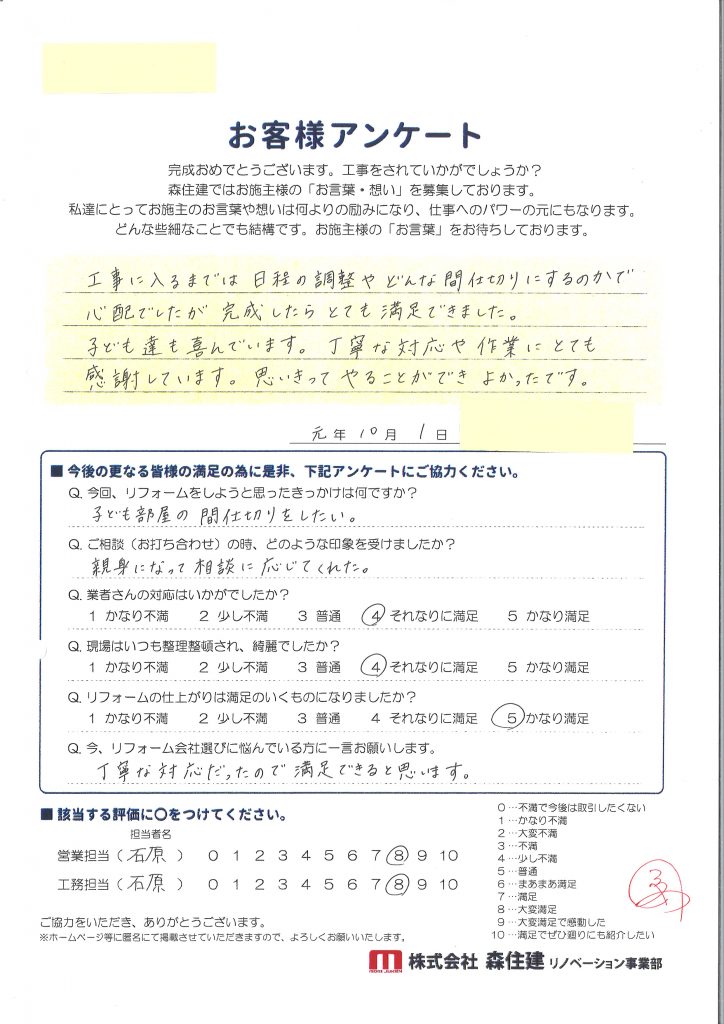 お客様アンケート
完成おめでとうございます。工事をされていかがでしょうか?
森住建ではお施主様の「お言葉・想い」を募集しております。
私達にとってお施主のお言葉や想いは何よりの励みになり、仕事へのパワーの元にもなります。
どんな些細なことでも結構です。お施主様の「お言葉」をお待ちしております。
工事に入るまでは 日程の調整や どんな間仕切りにするのかで
心配でしたが 完成したら とても 満足できました。
子ども達も喜んでいます。丁寧な対応や 作業に とても
感謝しています。思いきって やることができ よかったです。
元年 10月 1日
■ 今後の更なる皆様の満足の為に是非、下記アンケートにご協力ください。
Q. 今回、リフォームをしようと思ったきっかけは何ですか?
子ども部屋の 間仕切りをしたい。
Q. ご相談(お打ち合わせ)の時、どのような印象を受けましたか?
親身になって 相談に 応じてくれた。
Q. 業者さんの対応はいかがでしたか?
1 かなり不満 2 少し不満 3 普通 4 それなりに満足 5 かなり満足
Q. 現場はいつも整理整頓され、綺麗でしたか?
1 かなり不満 2 少し不満 3 普通 4 それなりに満足 5 かなり満足
Q. リフォームの仕上がりは満足のいくものになりましたか?
1 かなり不満 2 少し不満 3 普通 4 それなりに満足 5 かなり満足
Q. 今、リフォーム会社選びに悩んでいる方に一言お願いします。
丁寧な対応だったので 満足できると思います。
■ 該当する評価に〇をつけてください。
担当者名
営業担当( 石原 ) 0 1 2 3 4 5 6 7 8 9 10
工務担当( 石原 ) 0 1 2 3 4 5 6 7 8 9 10
0 …不満で今後は取引したくない
1 …かなり不満
2 …大変不満
3 …不満
4 …少し不満
5 …普通
6 …まあまあ満足
7 …満足
8 …大変満足
9 …大変満足で感動した
10 …満足でぜひ廻りにも紹介したい
ご協力をいただき、ありがとうございます。
※ホームページ等に匿名にて掲載させていただきますので、よろしくお願いいたします。
株式会社 森住建 リノベーション事業部